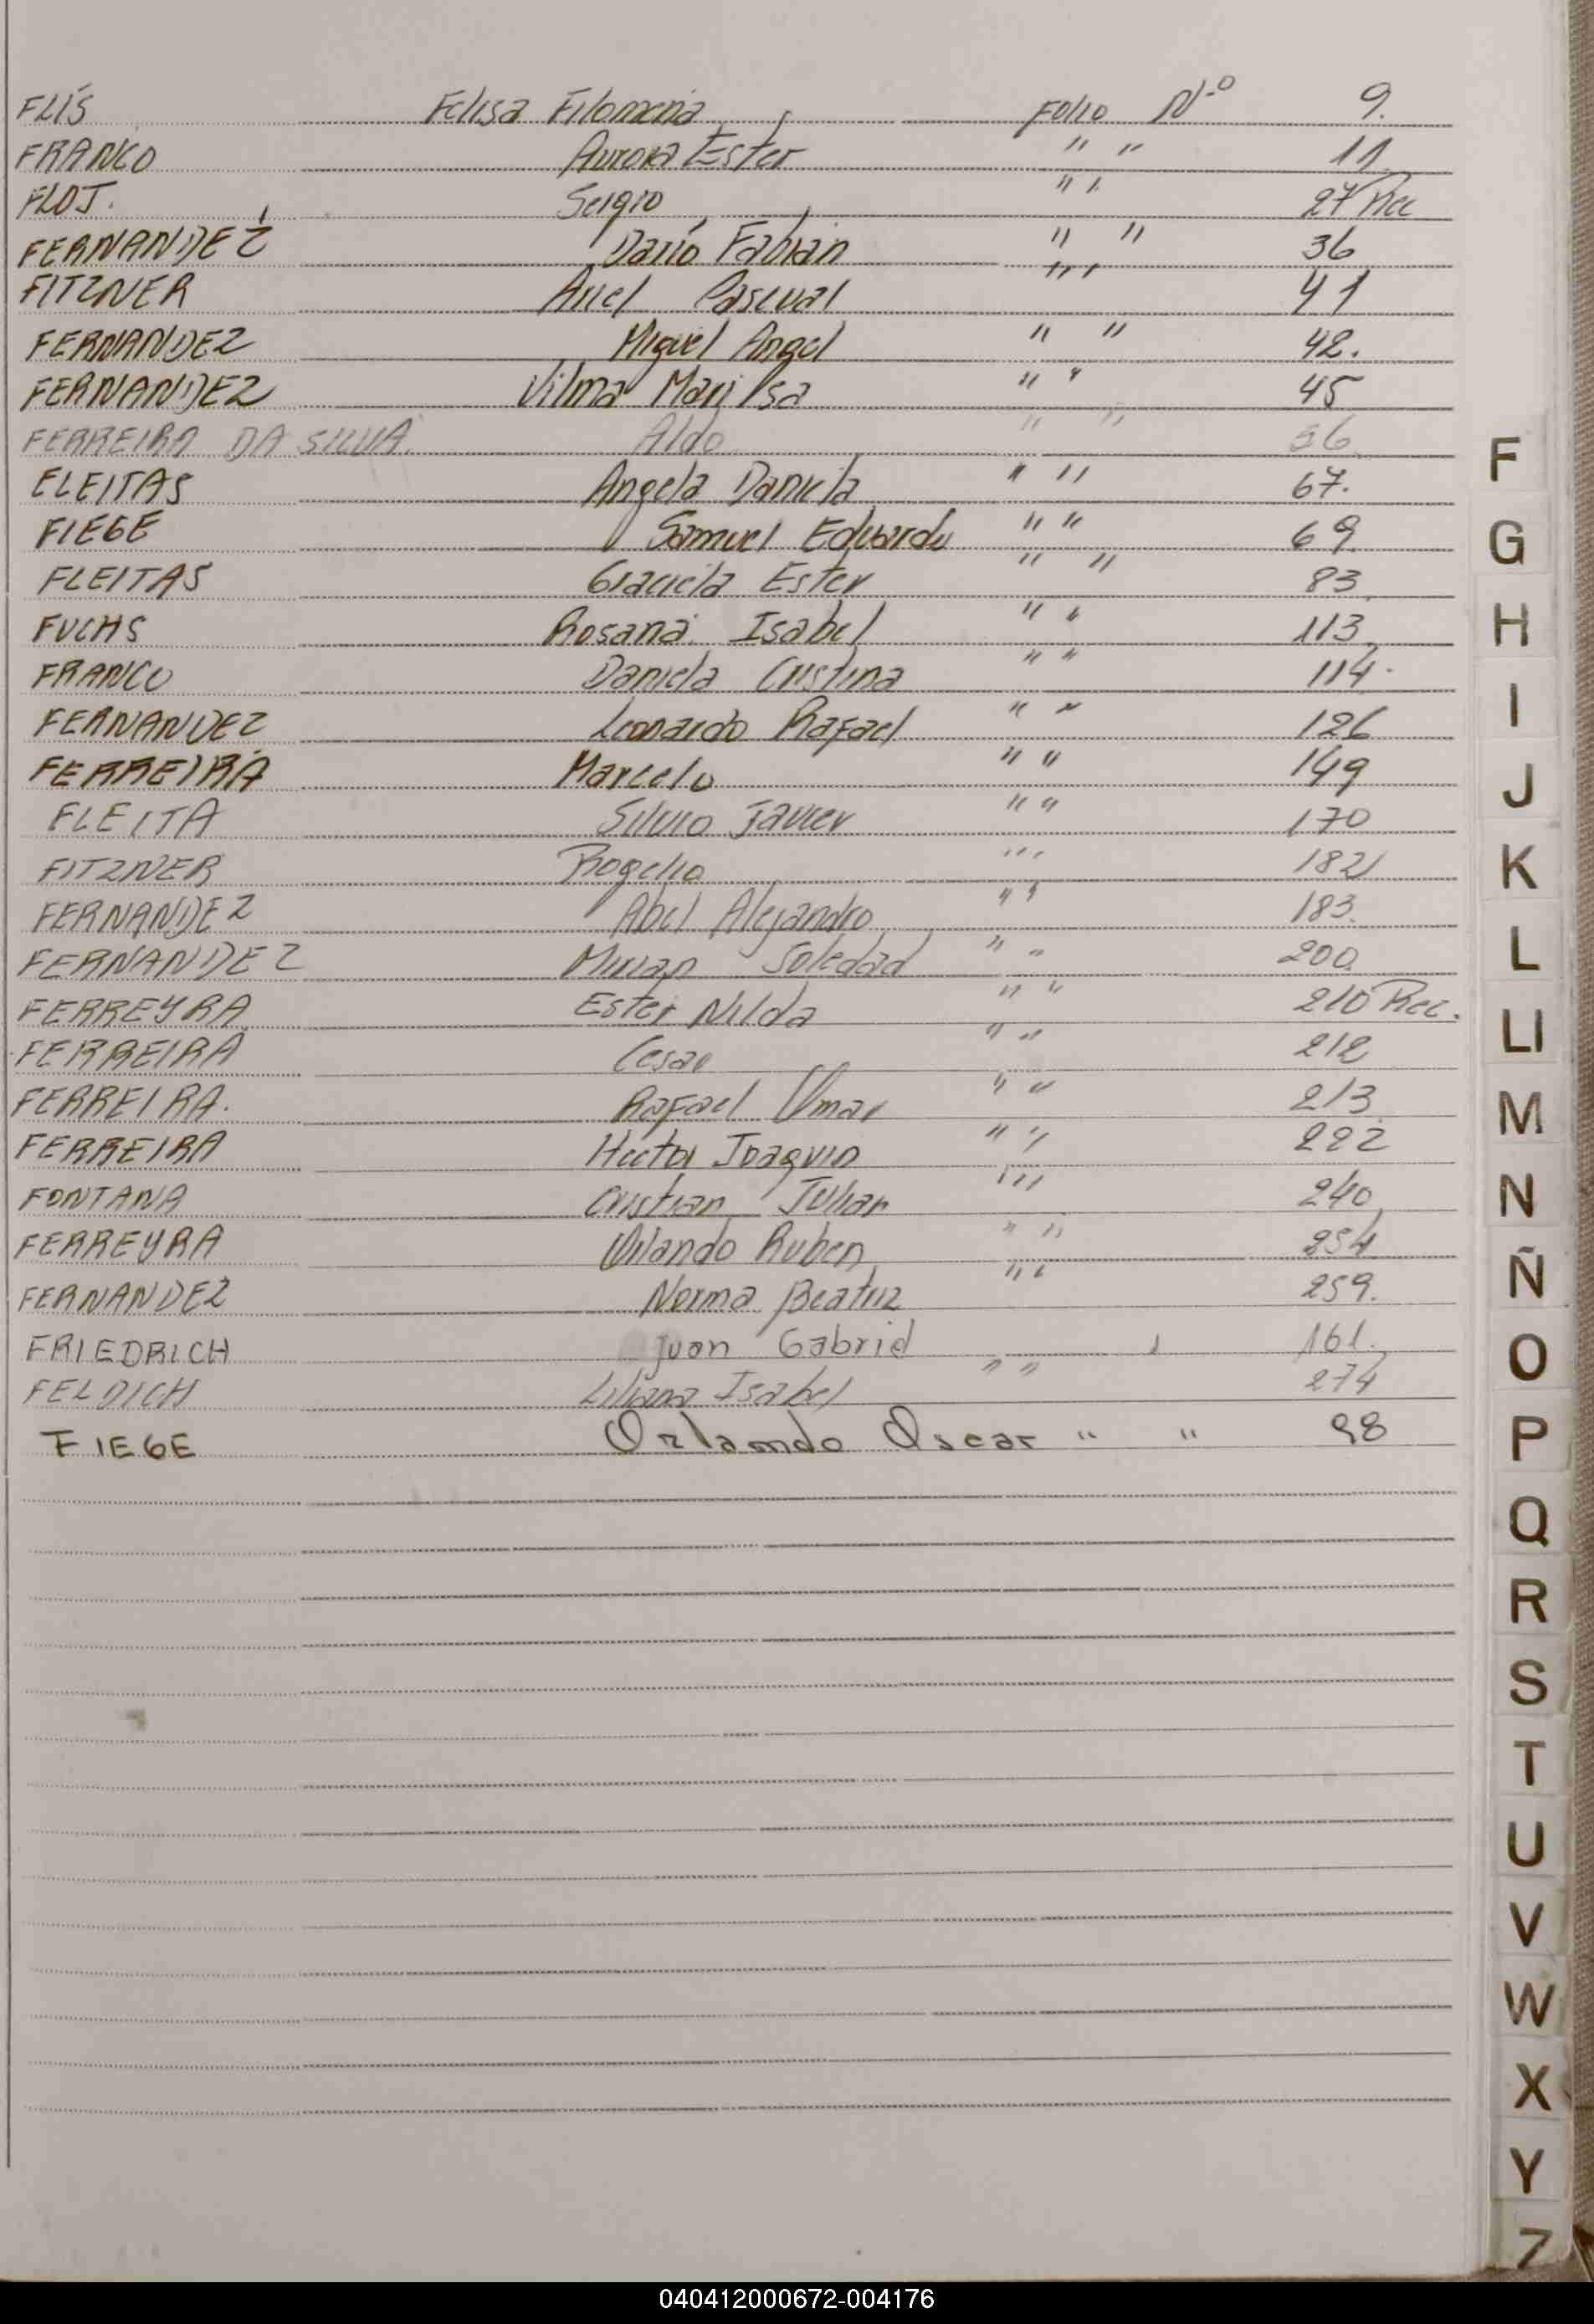 FLÍS Felisa Filomena Folio Nº 9.
FRANCO Aurora Ester " " 11
FLOJ. Sergio " " 27 Rec
FERNANDEZ Darío Fabián " " 36
FITZNER Ariel Pascual " " 41
FERNANDEZ Miguel Angel " " 42.
FERNANDEZ Vilma Marisa " " 45
FERREIRA DA SILVA. Aldo " " 56.
FLEITAS Angela Daniela " " 67.
FIEGE Samuel Eduardo " " 69.
FLEITAS Graciela Ester " " 83.
FUCHS Rosana Isabel " " 113
FRANCO Daniela Cristina " " 114.
FERNANDEZ Leonardo Rafael " " 126
FERREIRA Marcelo " " 149
FLEITA Silvio Javier " " 170
FITZNER Rogelio " " 182
FERNANDEZ Abel Alejandro " " 183.
FERNANDEZ Mirian Soledad " " 200.
FERREYRA Ester Nilda " " 210 Rec.
FERREIRA Cesar " " 212
FERREIRA. Rafael Omar " " 213
FERREIRA Hector Joaquin " " 222
FONTANA Cristian Julian " " 240
FERREYRA Orlando Ruben " " 254
FERNANDEZ Norma Beatriz " " 259.
FRIEDRICH Juan Gabriel 161.
FELDICH Liliana Isabel " " 274
FIEGE Orlando Oscar " " 98
F
G
H
I
J
K
L
Ll
M
N
Ñ
O
P
Q
R
S
T
U
V
W
X
Y
Z
040412000672-004176